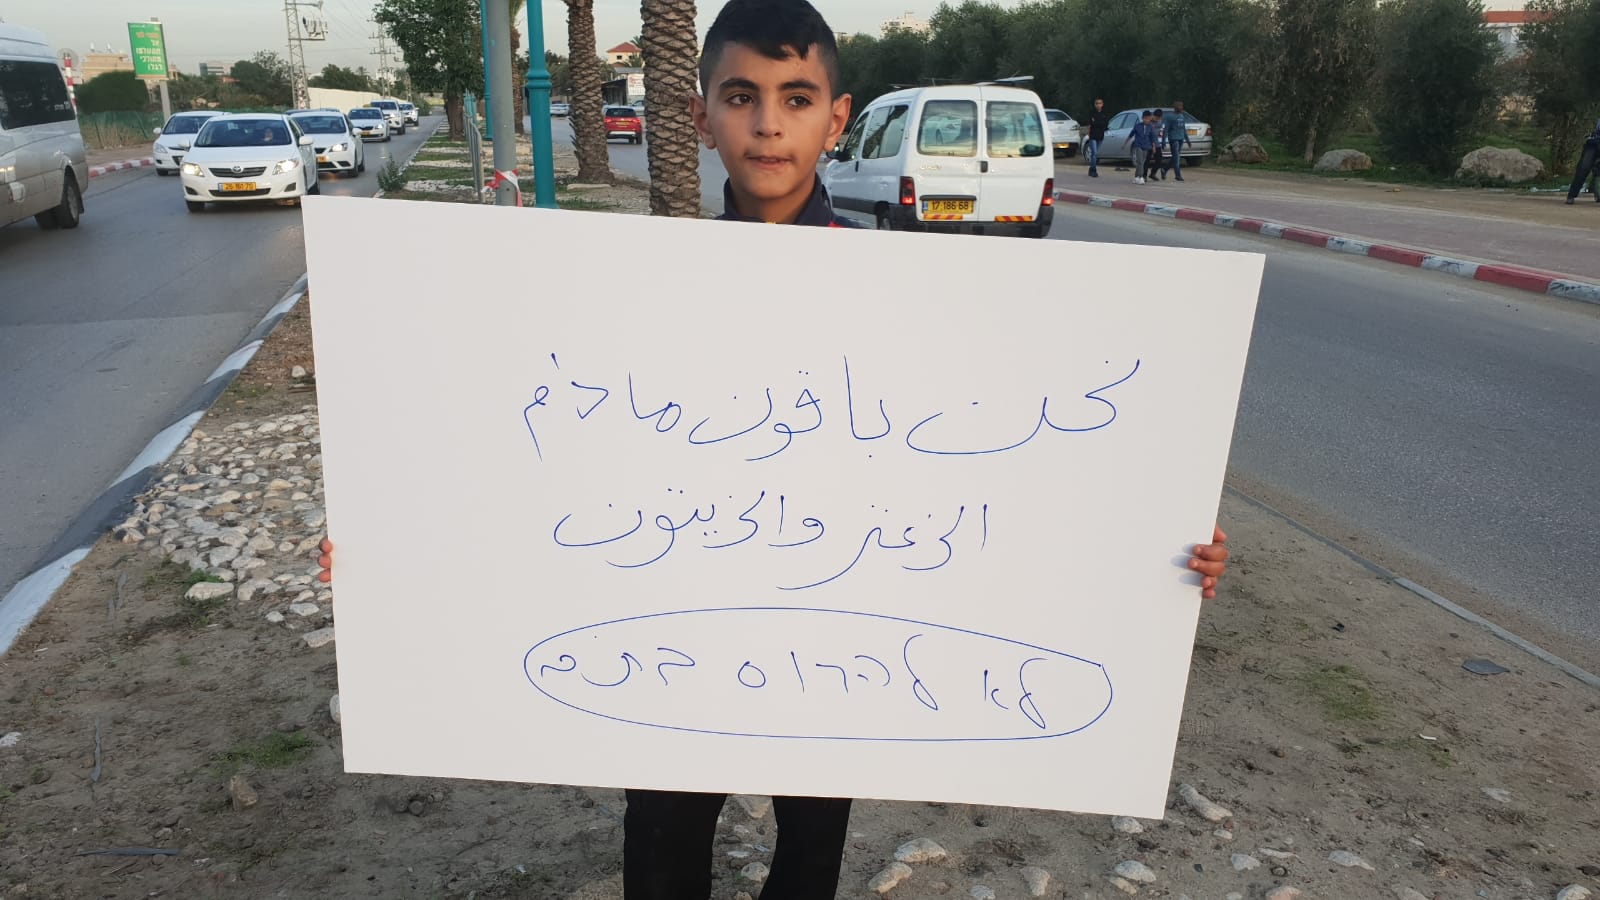 نحن باقون مادام
الزعتر والزيتون
לא להרוס בתים
17 186 68